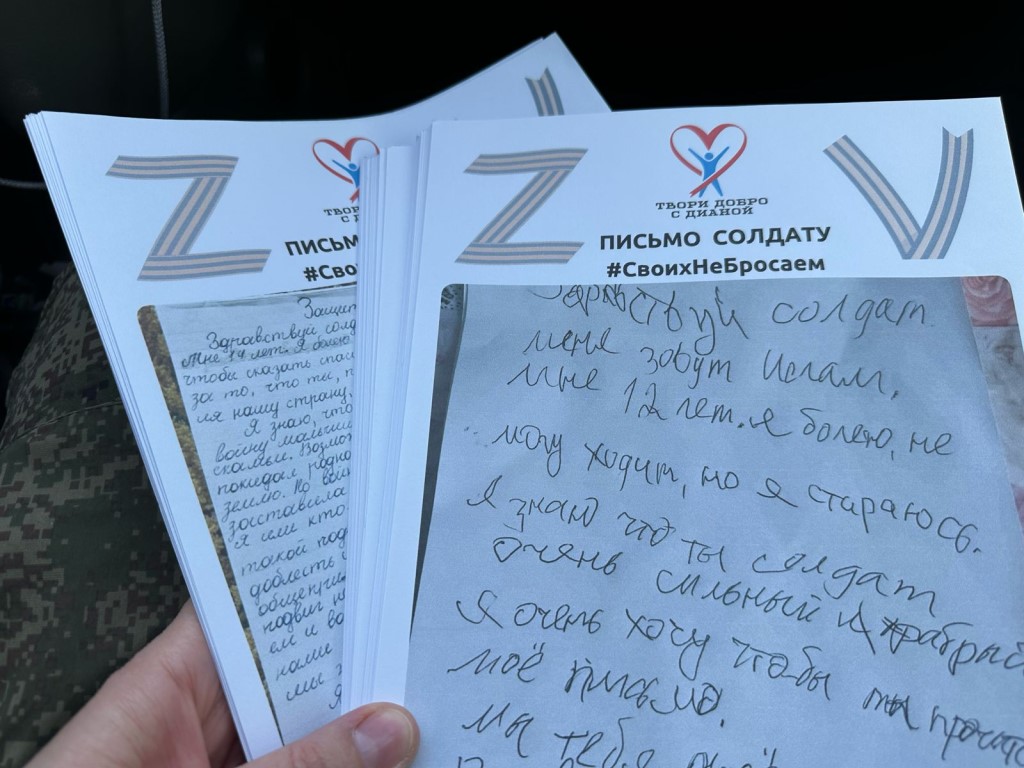 Z
ТВОРИ ДОБРО
С Д
ПИСЬМ
#Сво
Защит
Здравствуй солд
Мне 14 лет. Я болею
чтобы сказать спас
за то, что ты,
ля нашу страну.
Я знаю, что
войну мальчи
скамьи. Возмо
покидал родно
землю. Но
заставила
Я или кто
такой под
доблесть
подвиг
ем и во
нами
мы
Я
Z
V
ТВОРИ ДОБРО
С ДИАНОЙ
ПИСЬМО СОЛДАТУ
#СвоихНеБросаем
Здравствуй солдат
меня зовут Ислам,
мне 12 лет. я болею, не
могу ходит, но я стараюсь.
Я знаю что ты солдат
очень сильный и храбрый
Я очень хочу чтобы ты прочита
моё письмо.
мы тебя